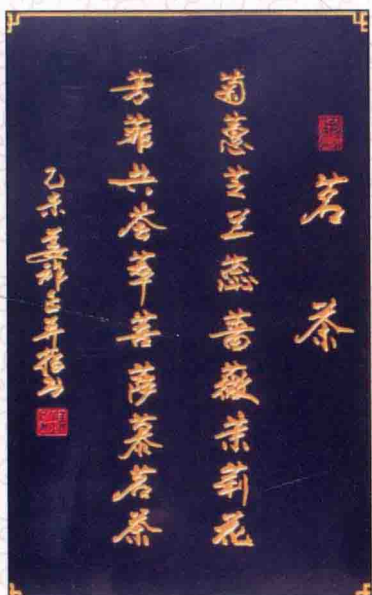 茗茶
菊蕙芝兰蕊蔷薇茉莉花
芳菲共荟萃菩萨慕茗茶
乙未